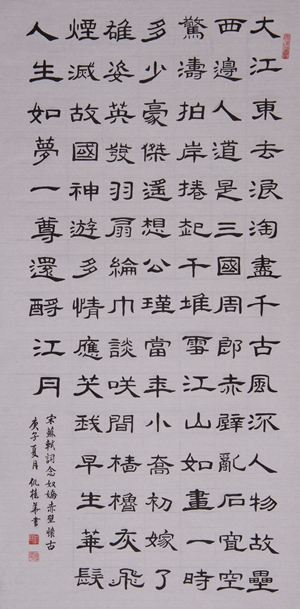 大江東去浪淘盡千古風流人物故壘
西邊人道是三國周郎赤壁亂石空
驚濤拍岸捲起千堆雪江山如畫一時
多少豪傑遙想公瑾當年小喬初嫁了
雄姿英發羽扇綸巾談咲間檣櫓灰飛
煙滅故國神遊多情應笑我早生華髮
人生如夢一尊還酹江月
宋蘇軾詞念奴嬌赤壁懷古
庚子夏月仇桂華書